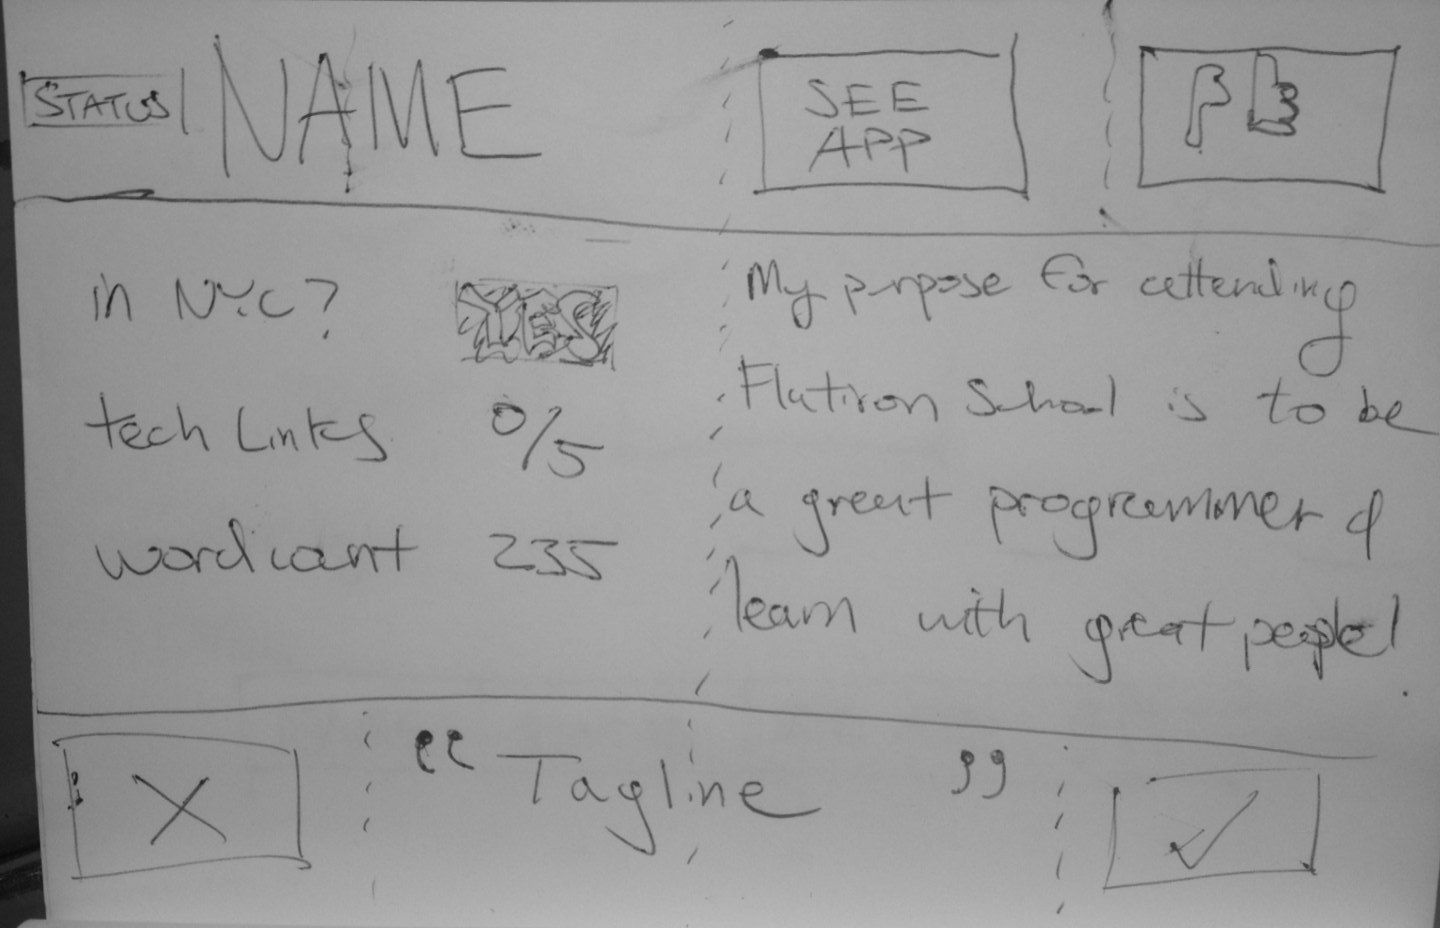 STATUS NAME SEE
APP
in NYC? YES
tech Links 0/5
word count 235
My purpose for attending
Flatiron School is to be
a great programmer &
learn with great people!
“ Tagline ”